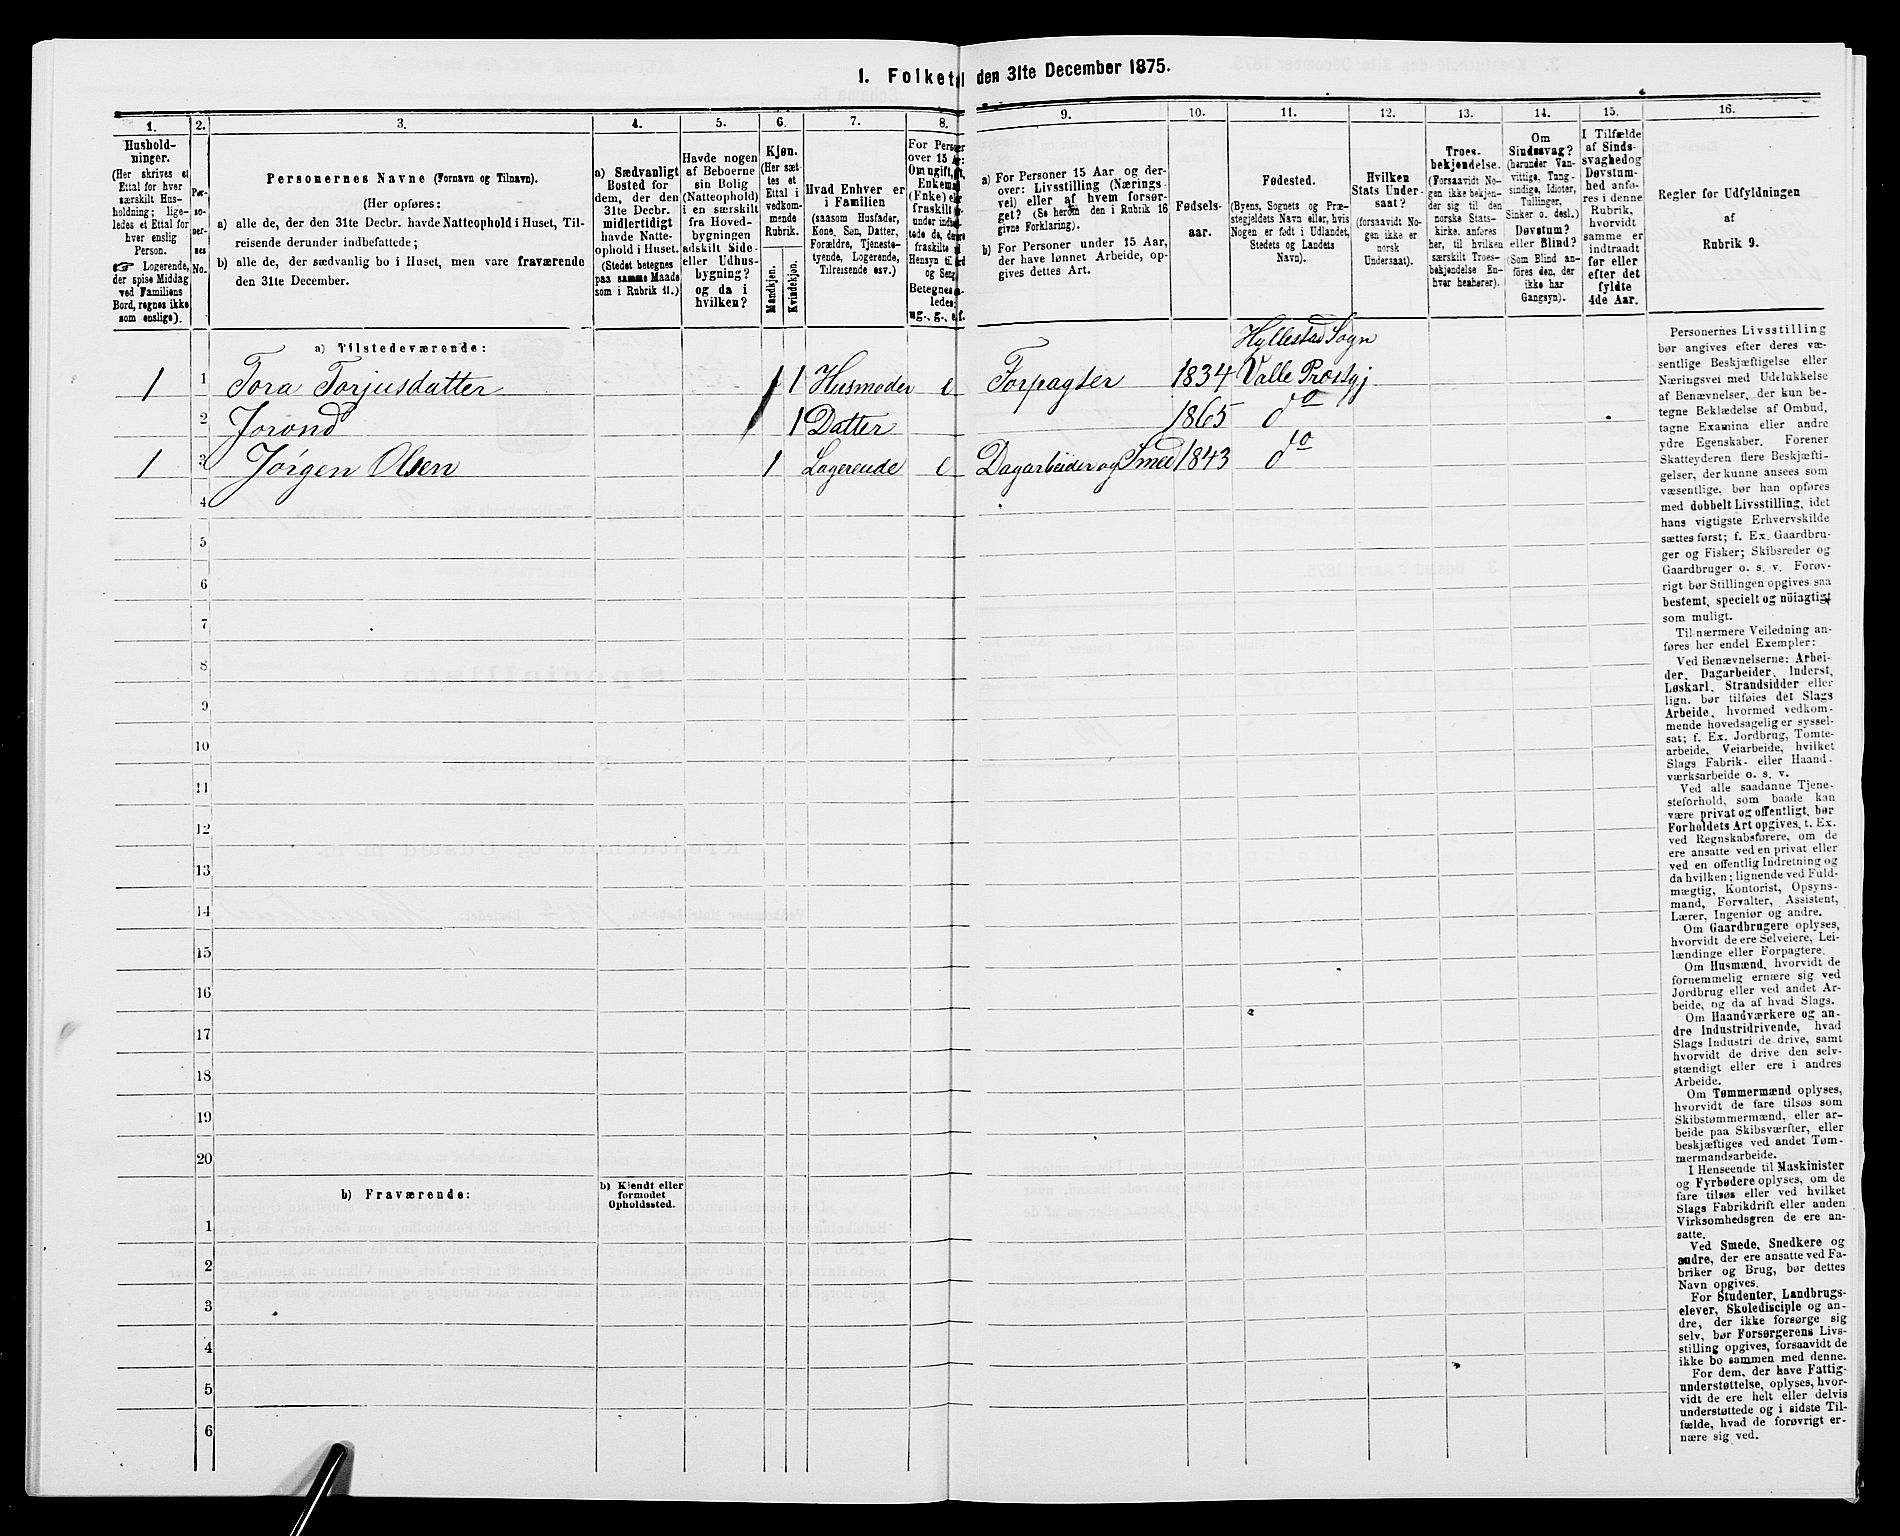 1. Folketal den 31te December 1875.
1. 2. 3. 4. 5. 6. 7. 8. 9. 10. 11. 12. 13. 14. 15. 16.
Hushold-
ninger.
(Her skrives et
Ettal for hver
særskilt Hus-
holdning; lige-
ledes et Ettal for
hver enslig
Person.
☞ Logerende,
der spise Middag
ved Familiens
Bord, regnes ikke
som enslige).
Per-
so-
ner-
nes
No.
Personernes Navne (Fornavn og Tilnavn).
(Her opføres:
a) alle de, der den 31te Decbr. havde Natteophold i Huset, Til-
reisende derunder indbefattede;
b) alle de, der sædvanlig bo i Huset, men vare fraværende
den 31te December.
a) Sædvanligt
Bosted for
dem, der den
31te Decbr.
midlertidigt
havde Natte-
ophold i Huset.
(Stedet betegnes
paa samme Maade
som i Rubrik 11.)
Havde nogen
af Beboerne
sin Bolig
(Natteophold)
i en særskilt
fra Hoved-
bygningen
adskilt Side-
eller Udhus-
bygning?
og da i
hvilken?
Kjøn.
(Her sæt-
tes et
Ettal i
vedkom-
mende
Rubrik.
Mandkjøn.
Kvindekjøn.
Hvad Enhver er
i Familien
(saasom Husfader,
Kone, Søn, Datter,
Forældre, Tjeneste-
tyende, Logerende,
Tilreisende osv.)
For Person
over 15 A
Om ugift, ft,
Enkeman
(Enke) el
fraskilt
Betegnes
ledes:
ug., g., e. f.
a) For Personer 15 Aar og der-
over: Livsstilling (Nærings-
vei) eller af hvem forsør-
get? (Se herom den i Rubrik 16
givne Forklaring).
b) For Personer under 15 Aar,
der have lønnet Arbeide, op-
gives dettes Art.
Fødsels-
aar.
Fødested.
(Byens, Sognets og Præ-
stegjeldets Navn eller, hvis
Nogen er født i Udlandet,
Stedets og Landets
Navn).
Hvilken
Stats Under-
saat?
(forsaavidt No-
gen ikke er
norsk
Undersaat).
Troes-
bekjendelse.
(Forsaavidt No-
gen ikke bekjen-
der sig til den
norske Stats-
kirke, anføres
her, til hvilken
særskilt Troes-
bekjendelse En-
hver henhører).
Om
Sindssvag?
(herunder Van-
vittige, Tung-
sindige, Idioter,
Tullinger,
Sinker o. desl.)
Døvstum?
eller Blind?
(Som Blind an-
føres den, der
ikke har
Gangsyn).
I Tilfælde
af Sinds-
svaghed og
Døvstum-
hed anfø-
res i denne
Rubrik,
hvorvidt
samme er
indtraadt
før eller
efter det
fyldte
4de Aar.
Regler for Udfyldningen
af
Rubrik 9.
a) Tilstedeværende:
Hyllestad Sogn
1 1 Tora Torjusdatter 1 Husmoder e Forpagter 1834 Valle Prostgj
2 Jorond 1 Datter 1865 do
1 3 Jörgen Olsen 1 Logerende e Dagarbeider og Smed 1843 do
4
5
6
7
8
9
10
11
12
13
14
15
16
17
18
19
20
b) Fraværende:
b) Kjendt eller
formodet
Opholdssted.
1
2
3
4
5
6
Personernes Livsstilling
bør angives efter deres væ-
sentlige Beskjæftigelse eller
Næringsvei med Udelukkelse
af Benævnelser, der kun be-
tegne Beklædelse af Ombud,
tagne Examina eller andre
ydre Egenskaber. Forener
Skatteyderen flere Beskjæfti-
gelser, der kunne ansees som
væsentlige, bør han opføres
med dobbelt Livsstilling, idet
hans vigtigste Erhvervskilde
sættes først; f. Ex. Gaardbru-
ger og Fisker; Skibsreder og
Gaardbruger o. s. v. Forøv-
rigt bør Stillingen opgives saa
bestemt, specielt og nöiagtigt
som muligt.
Til nærmere Veiledning an-
føres her endel Exempler:
Ved Benævnelserne: Arbei-
der, Dagarbeider, Inderst,
Løskarl, Strandsidder eller
lign. bør tilføies det Slags
Arbeide, hvormed vedkom-
mende hovedsagelig er syssel-
sat; f. Ex. Jordbrug, Tomte-
arbeide, Veiarbeide, hvilket
Slags Fabrik- eller Haand-
værksarbeide o. s. v.
Ved alle saadanne Tjene-
steforhold, som baade kan
være privat og offentligt, bør
Forholdets Art opgives, t. Ex.
ved Regnskabsførere, om de
ere ansatte ved en privat eller
ved en offentlig Indretning og
da hvilken; lignende ved Fuld-
mægtig, Kontorist, Opsyns-
mand, Forvalter, Assistent,
Lærer, Ingeniør og andre.
Om Gaardbrugere oplyses,
hvorvidt de ere Selveiere, Lei-
lændinge eller Forpagtere.
Om Husmænd, hvorvidt de
fornemmelig ernære sig ved
Jordbrug eller ved andet Ar-
beide, og da af hvad Slags.
Om Haandværkere og an-
dre Industridrivende, hvad
Slags Industri de drive, samt
hvorvidt de drive den selv-
stændigt eller ere i andres
Arbeide.
Om Tømmermænd oplyses,
hvorvidt de fare tilsøs som
Skibstømmermænd, eller ar-
beide paa Skibsværfter, eller
beskjæftiges ved andet Tøm-
mermandsarbeide.
I Henseende til Maskinister
og Fyrbødere oplyses, om de
fare tilsøs eller ved hvilket
Slags Fabrikdrift eller anden
Virksomhedsgren de ere an-
satte.
Ved Smede, Snedkere og
andre, der ere ansatte ved Fa-
briker og Brug, bør dettes
Navn opgives.
For Studenter, Landbrugs-
elever, Skoledisciple og an-
dre, der ikke forsørge sig
selv, bør Forsørgerens Livs-
stilling opgives, forsaavidt de
ikke bo sammen med denne.
For dem, der have Fattig-
understøttelse, oplyses, hvor-
vidt de ere helt eller delvis
understøttede og i sidste Til-
fælde, hvad de forøvrigt er-
nære sig ved.